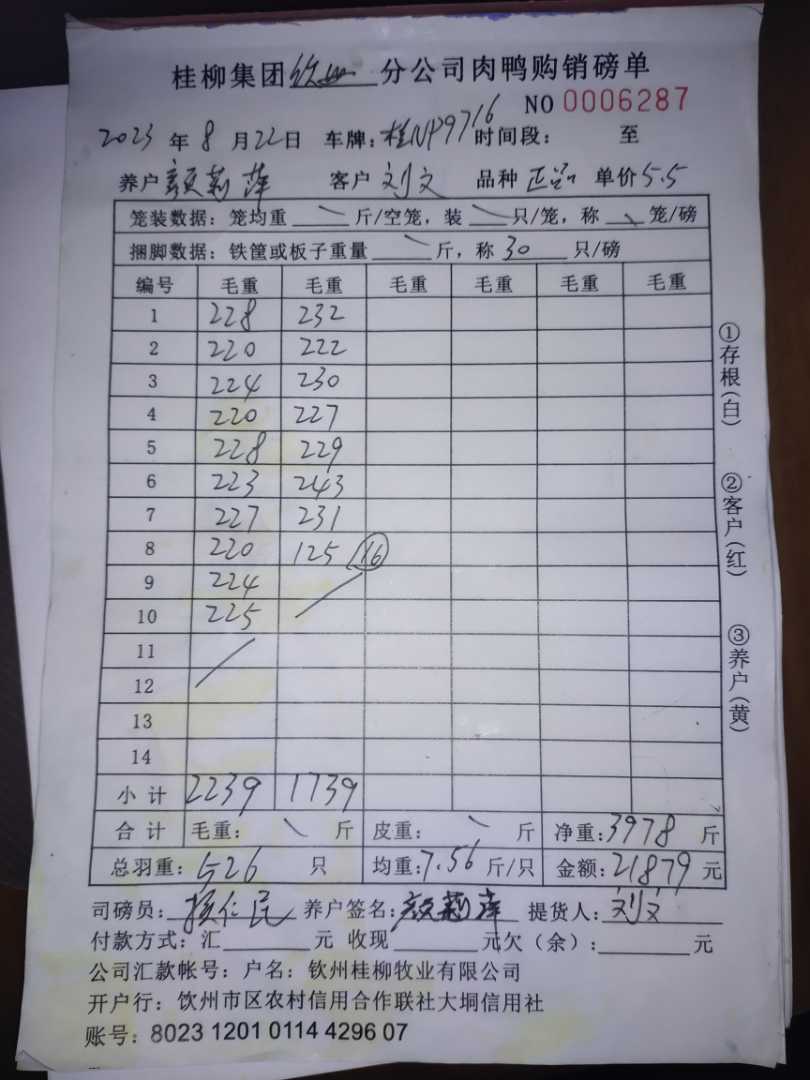 桂柳集团钦州分公司肉鸭购销磅单
NO 0006287
2023 年 8 月 22 日 车牌：桂NP9716 时间段： 至
养户 颜莉萍 客户 刘文 品种 单价 5.5
笼装数据：笼均重 斤/空笼，装 只/笼，称 笼/磅
捆脚数据：铁筐或板子重量 斤，称 30 只/磅
编号 毛重 毛重 毛重 毛重 毛重 毛重
1 228 232
2 220 222
3 224 230
4 220 227
5 228 229
6 223 243
7 227 231
8 220 125 16
9 224
10 225
11
12
13
14
小计 2239 1739
合计 毛重： 斤 皮重： 斤 净重：3978 斤
总羽重：526 只 均重：7.56 斤/只 金额：21879 元
司磅员： 仁民 养户签名：颜莉萍 提货人：刘文
付款方式：汇 元 收现 元欠（余）： 元
公司汇款帐号：户名：钦州桂柳牧业有限公司
开户行：饮州市区农村信用合作联社大垌信用社
账号：8023 1201 0114 4296 07
①存根（白）
②客户（红）
③养户（黄）